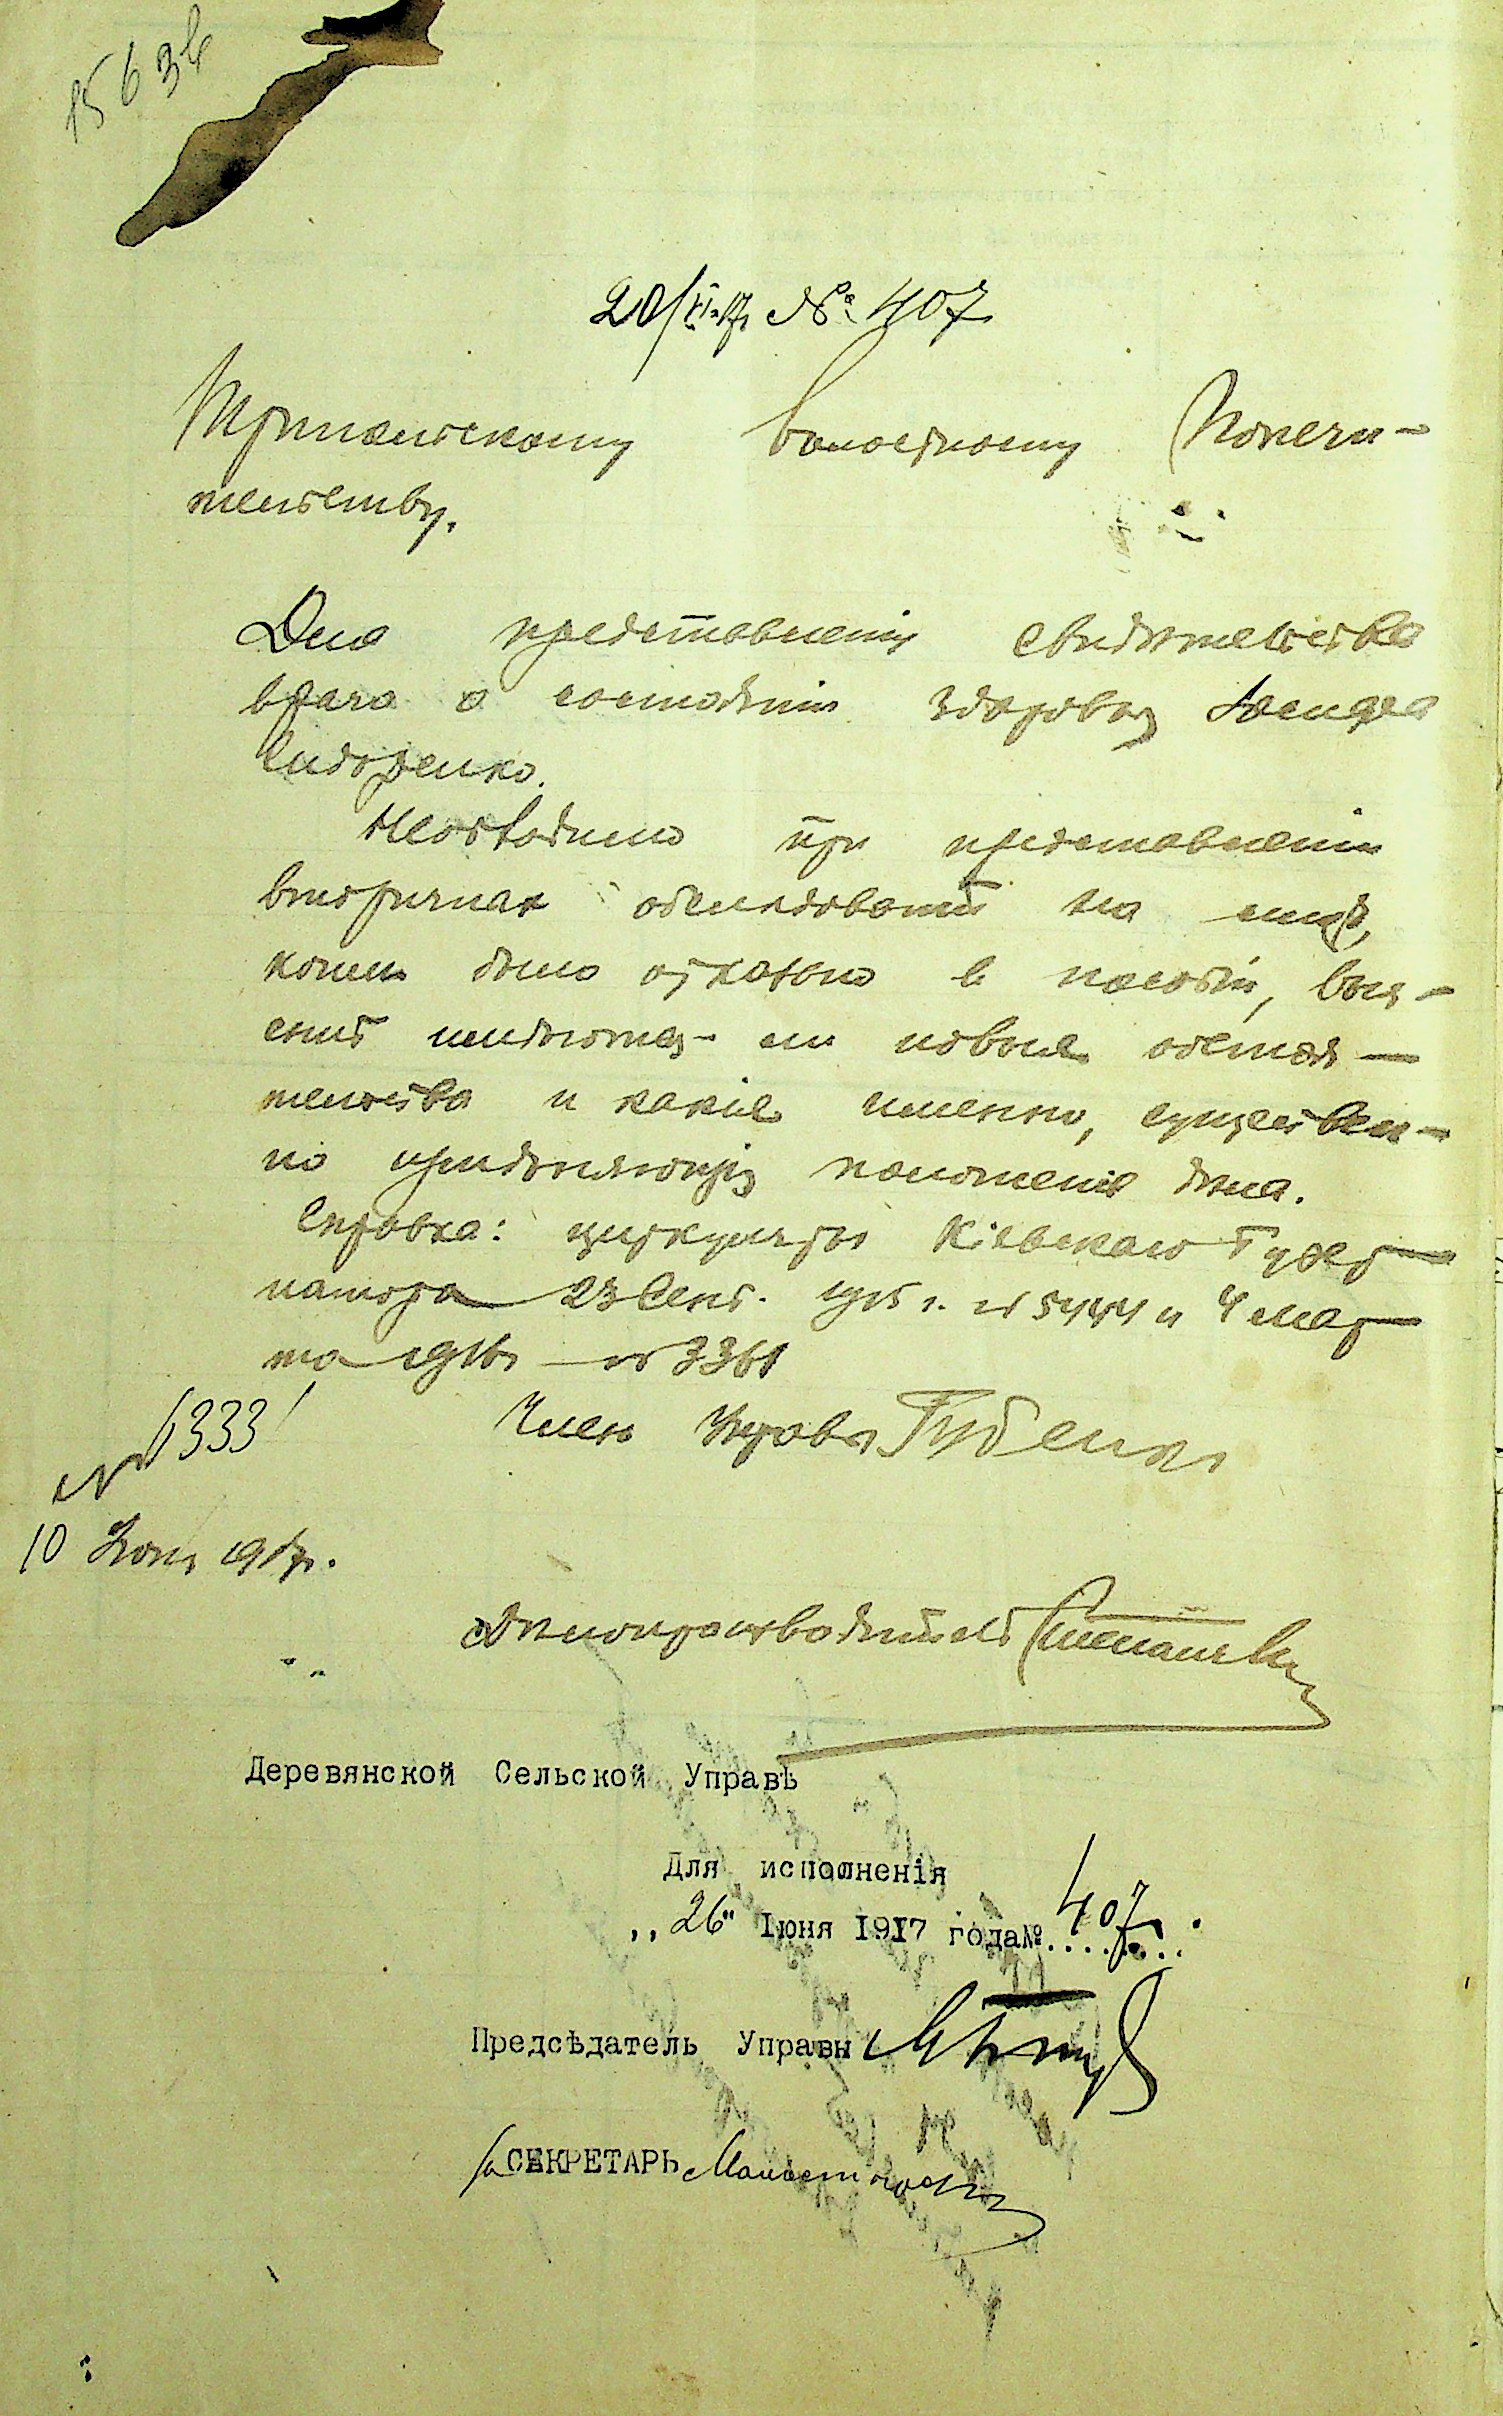 20/VI-17г. № 407
Трипольскому Волостному Попечи-
тельству.
Для представленія свидѣтельства
врача о состояніи здоровья Іосифа
Сидоренко.
Необходимо при представленіи
вторичнах обслѣдованій на лицъ,
коимъ было отказано в пособіи, выя-
снить имѣются-ли новые обстоя-
тельства и какіе именно, существен-
но измѣняющія положеніе дѣла.
Справка: циркуляры Кіевскаго Губер-
натора 23 Сент. 1915 г. № 5444 и 4 мар-
та 1916г № 3361
Член Управы Губенко
№ 6333
10 Іюня 1917г.
Дѣлопроизводитель
Деревянской Сельской Управѣ
Для исполненія
„26" Іюня 1917 года № 407
Предсѣдатель Управы
СЕКРЕТАРЬ